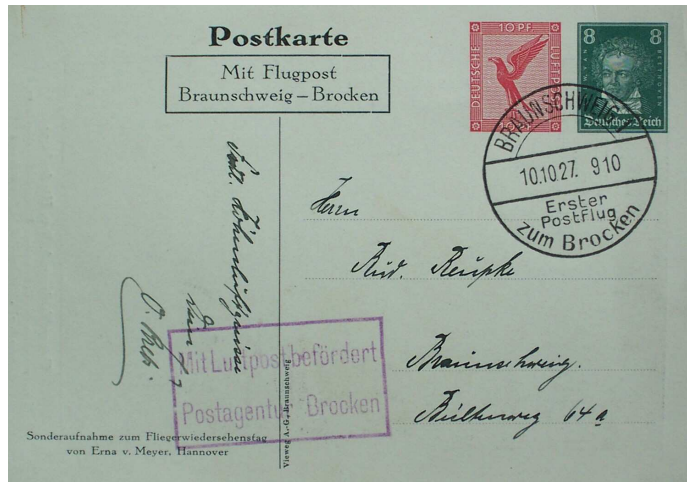 Postkarte
Mit Flugpost
Braunschweig – Brocken
10 PF
DEUTSCHE
LUFTPOST
8 8
L. W. VAN
BEETHOVEN
Deutsches Reich
BRAUNSCHWEIG 1
10.10.27. 9 10
Erster
Postflug
zum Brocken
Herrn
Rud. Reupke
Braunschweig.
Bültenweg 64a
Mit Luftpost befördert
Postagentur Brocken
Sonderaufnahme zum Fliegerwiedersehenstag
von Erna v. Meyer, Hannover
Vieweg A.-G., Braunschweig